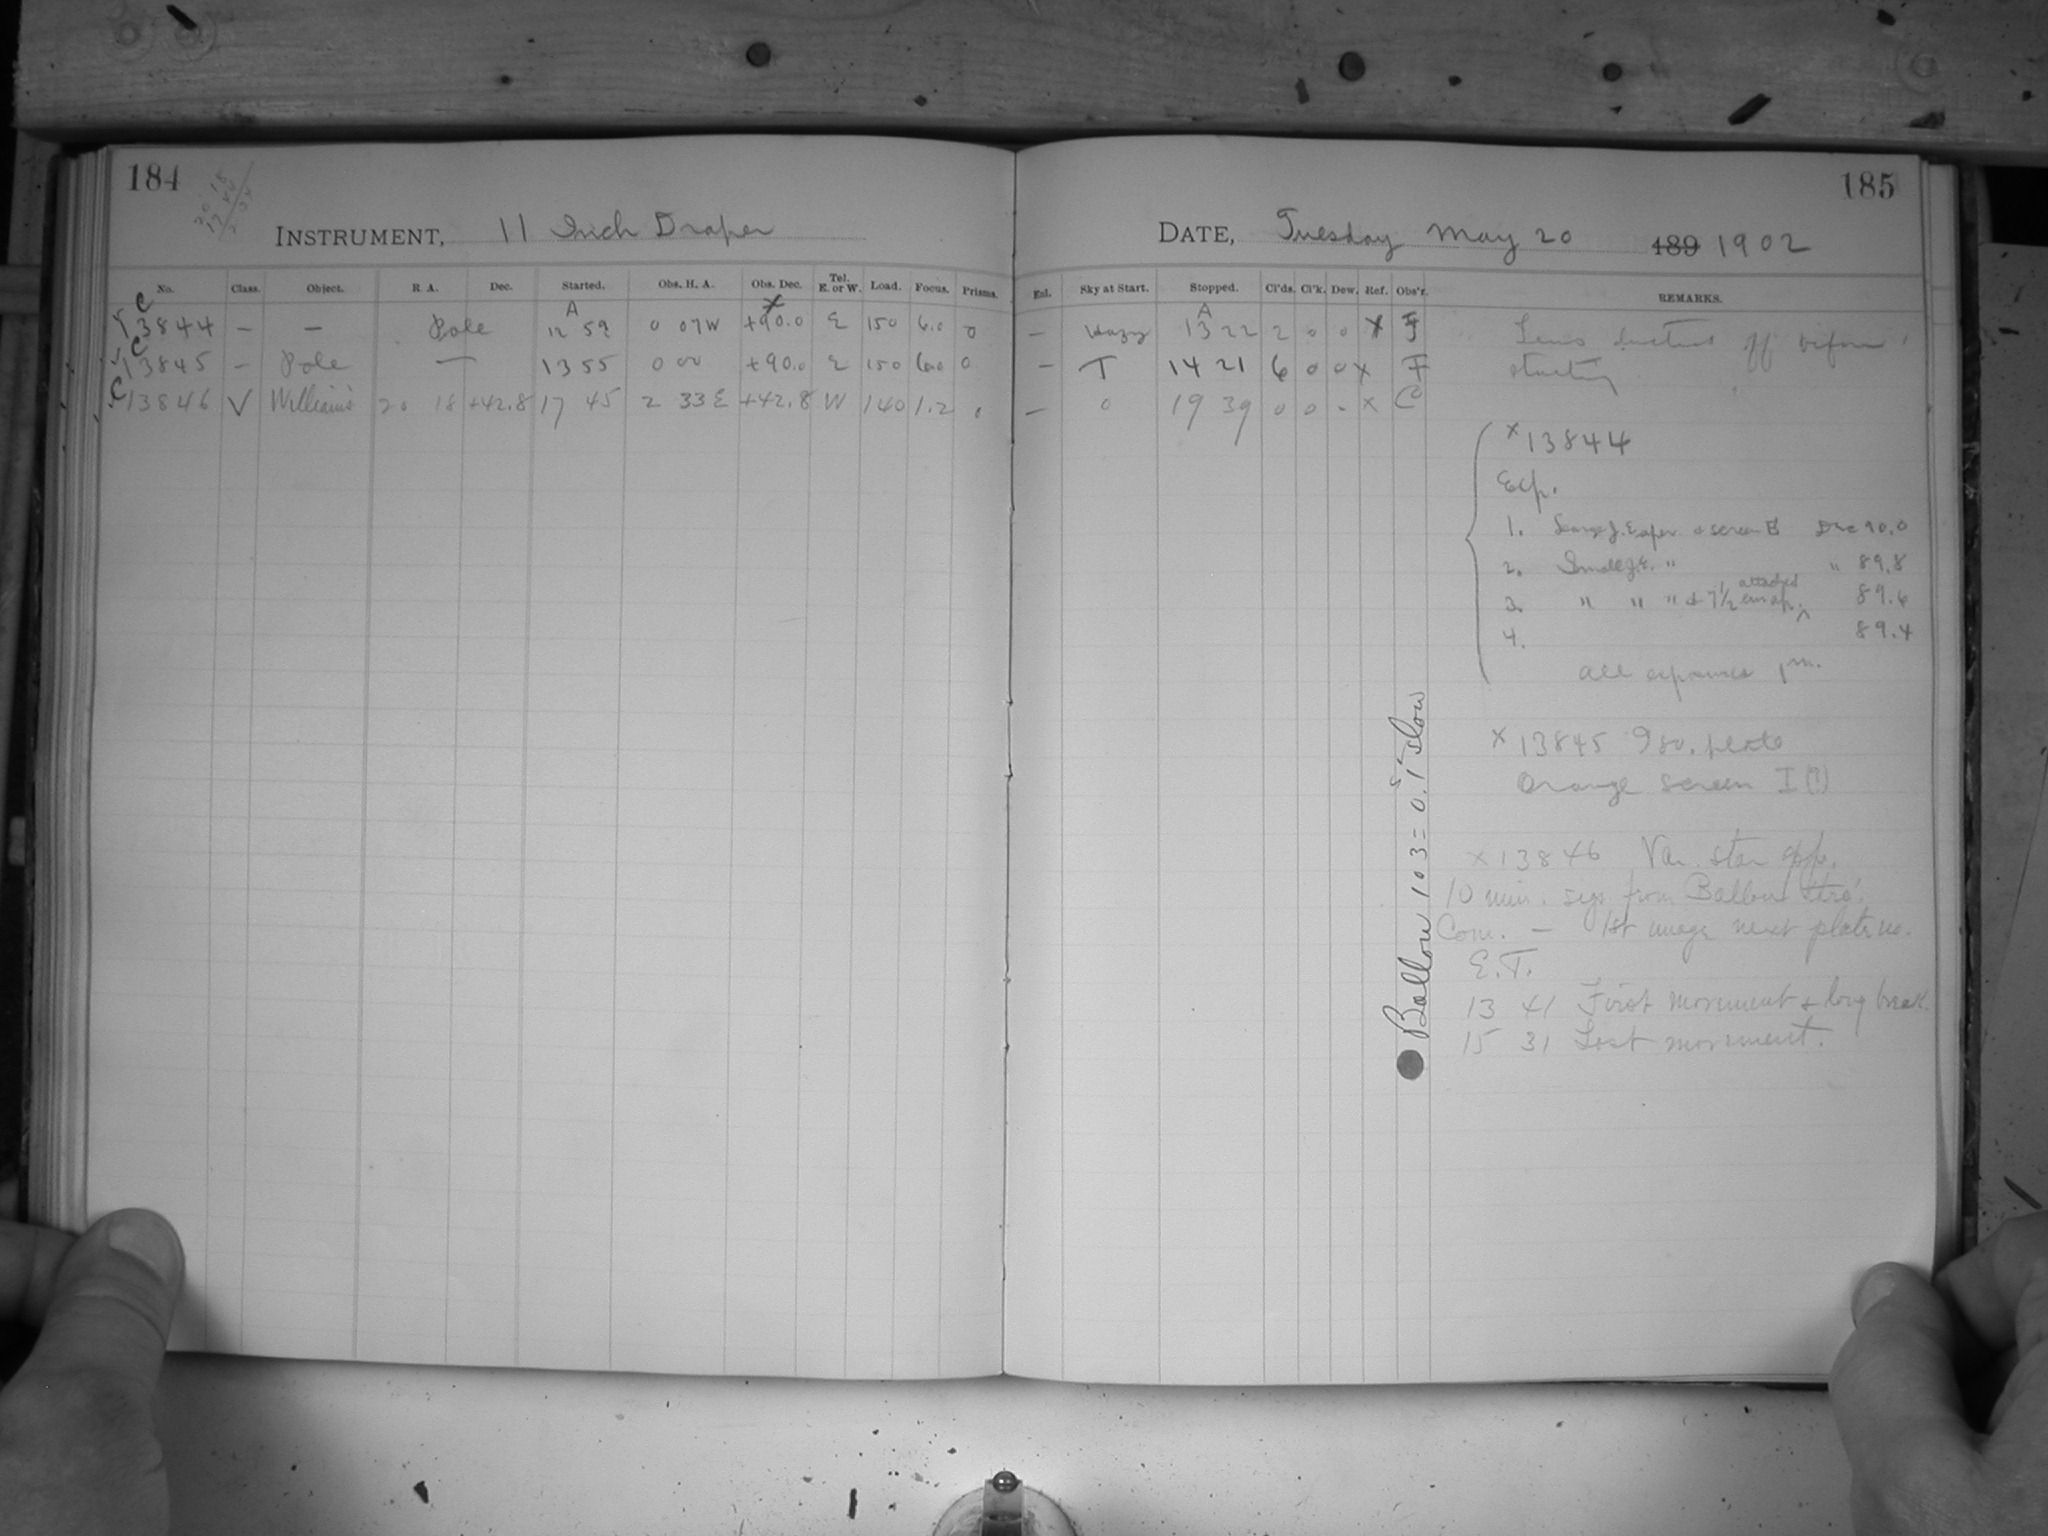 184
20 18
INSTRUMENT, 11 Inch Draper
No. Class. Object. R. A. Dec. Started. Obs. H. A. Obs. Dec. Tel. E. or W. Load. Focus. Prisms.
C 13844 – – Pole A 12 59 0 07 W x +90.0 E 150 6.0 0
C 13845 – Pole — 13 55 0 00 +90.0 E 150 6.0 0
C 13846 V William's 20 18 +42.8 17 45 2 33 E +42.8 W 140 1.2 0
185
DATE, Tuesday May 20 189 1902
Enl. Sky at Start. Stopped. Cl'ds. Cl'k. Dew. Ref. Obs'r. REMARKS.
– Hazy A 13 22 2 0 0 x F Lens dusted off before
– T 14 21 6 0 0 x F starting
– 0 19 39 0 0 - x Co
x 13844
Exp.
1. Large & screen Dec 90.0
2. Small " " 89.8
3. " " " & 7 1/2 attached 89.6
4. 89.4
all exposures 1 m.
x 13845 Iso. plate
Orange Screen I (?)
x 13846 Var. star app.
10 min. segs. from Ballou
Com. – 1st image next plate no.
E.T.
13 41 First movement & long break.
15 31 Last movement.
Ballou 103 = 0.1 s slow